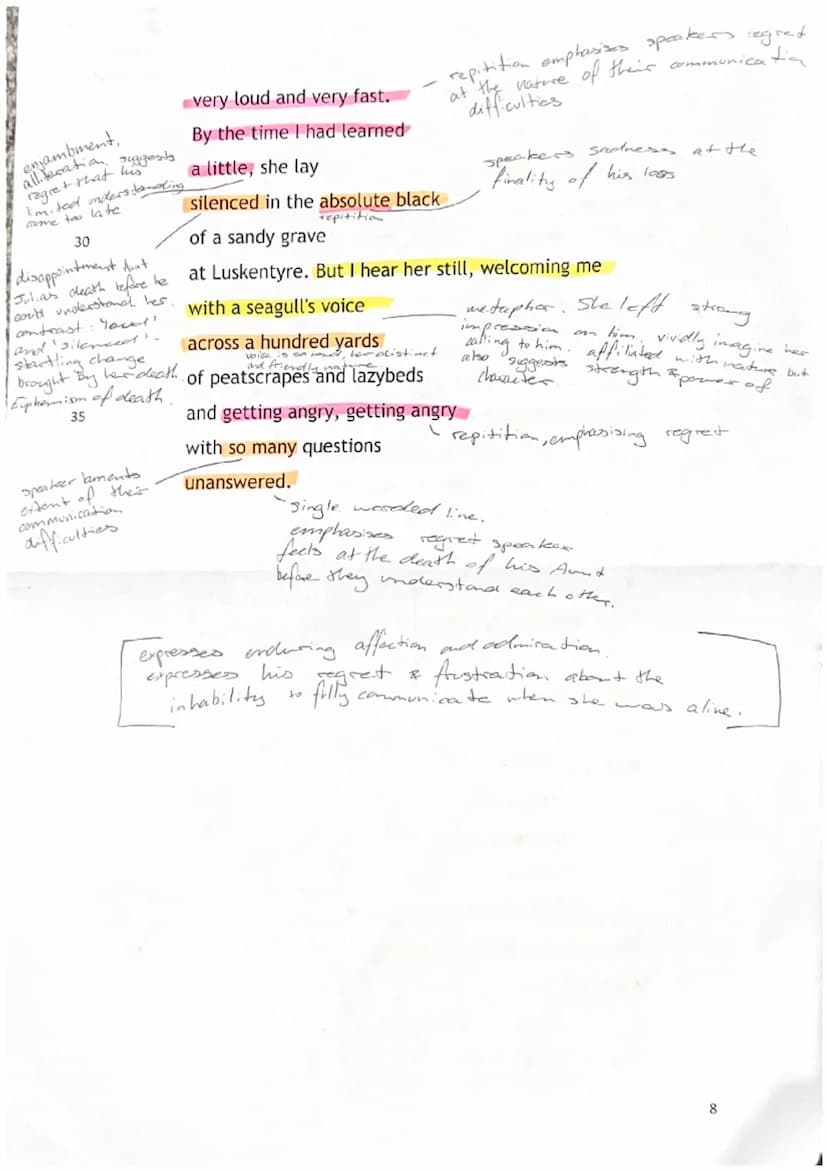 very loud and very fast.
By the time I had learned
a little, she lay
silenced in the absolute black
repitition
30
of a sandy grave
at Luskentyre. But I hear her still, welcoming me
with a seagull's voice
across a hundred yards
voice is so loud, her distinct
and friendly nature
of peatscrapes and lazybeds
35
and getting angry, getting angry
with so many questions
unanswered.
repitition emphasises speakers regret
at the nature of their communication
difficulties
enjambment,
alliteration, suggests
regret that his
limited understanding
came too late
speakers sadness at the
finality of his loss
disappointment Aunt
Julias death before he
could understand her.
contrast: 'loud'
and 'silenced' -
startling change
brought By her death.
Euphemism of death.
metaphor. She left strong
impression on him, vividly imagine her
calling to him. affiliated with nature but
also suggests strength & power of
character
repitition, emphasising regret
speaker laments
extent of their
communication
difficulties
single worded line.
emphasises regret speaker
feels at the death of his Aunt
before they understand each other.
expresses enduring affection and admiration.
expresses his regret & frustration about the
inhability to fully communicate when she was aline.
8